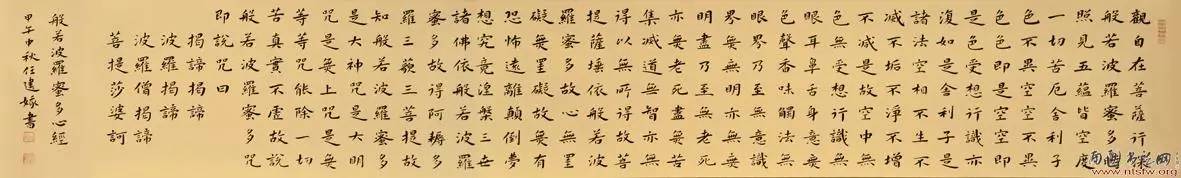 觀自在菩薩行深
般若波羅蜜多時
照見五蘊皆空度
一切苦厄舍利子
色不異空空不異
色色即是空空即
是色受想行識亦
復如是舍利子是
諸法空相不生不
滅不垢不淨不增
不減是故空中無
色無受想行識無
眼耳鼻舌身意無
色聲香味觸法無
眼界乃至無意識
界無無明亦無無
明盡乃至無老死
亦無老死盡無苦
集滅道無智亦無
得以無所得故菩
提薩埵依般若波
羅蜜多故心無罣
礙無罣礙故無有
恐怖遠離顛倒夢
想究竟涅槃三世
諸佛依般若波羅
蜜多故得阿耨多
羅三藐三菩提故
知般若波羅蜜多
是大神咒是大明
咒是無上咒是無
等等咒能除一切
苦真實不虛故說
般若波羅蜜多咒
即說咒曰
揭諦揭諦
波羅揭諦
波羅僧揭諦
菩提莎婆訶
般若波羅蜜多心經
甲午中秋任書
www.ntsfw.org